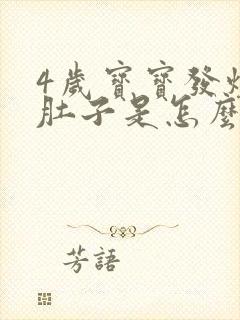 4歲寶寶發燒
肚子是怎麼
芳語